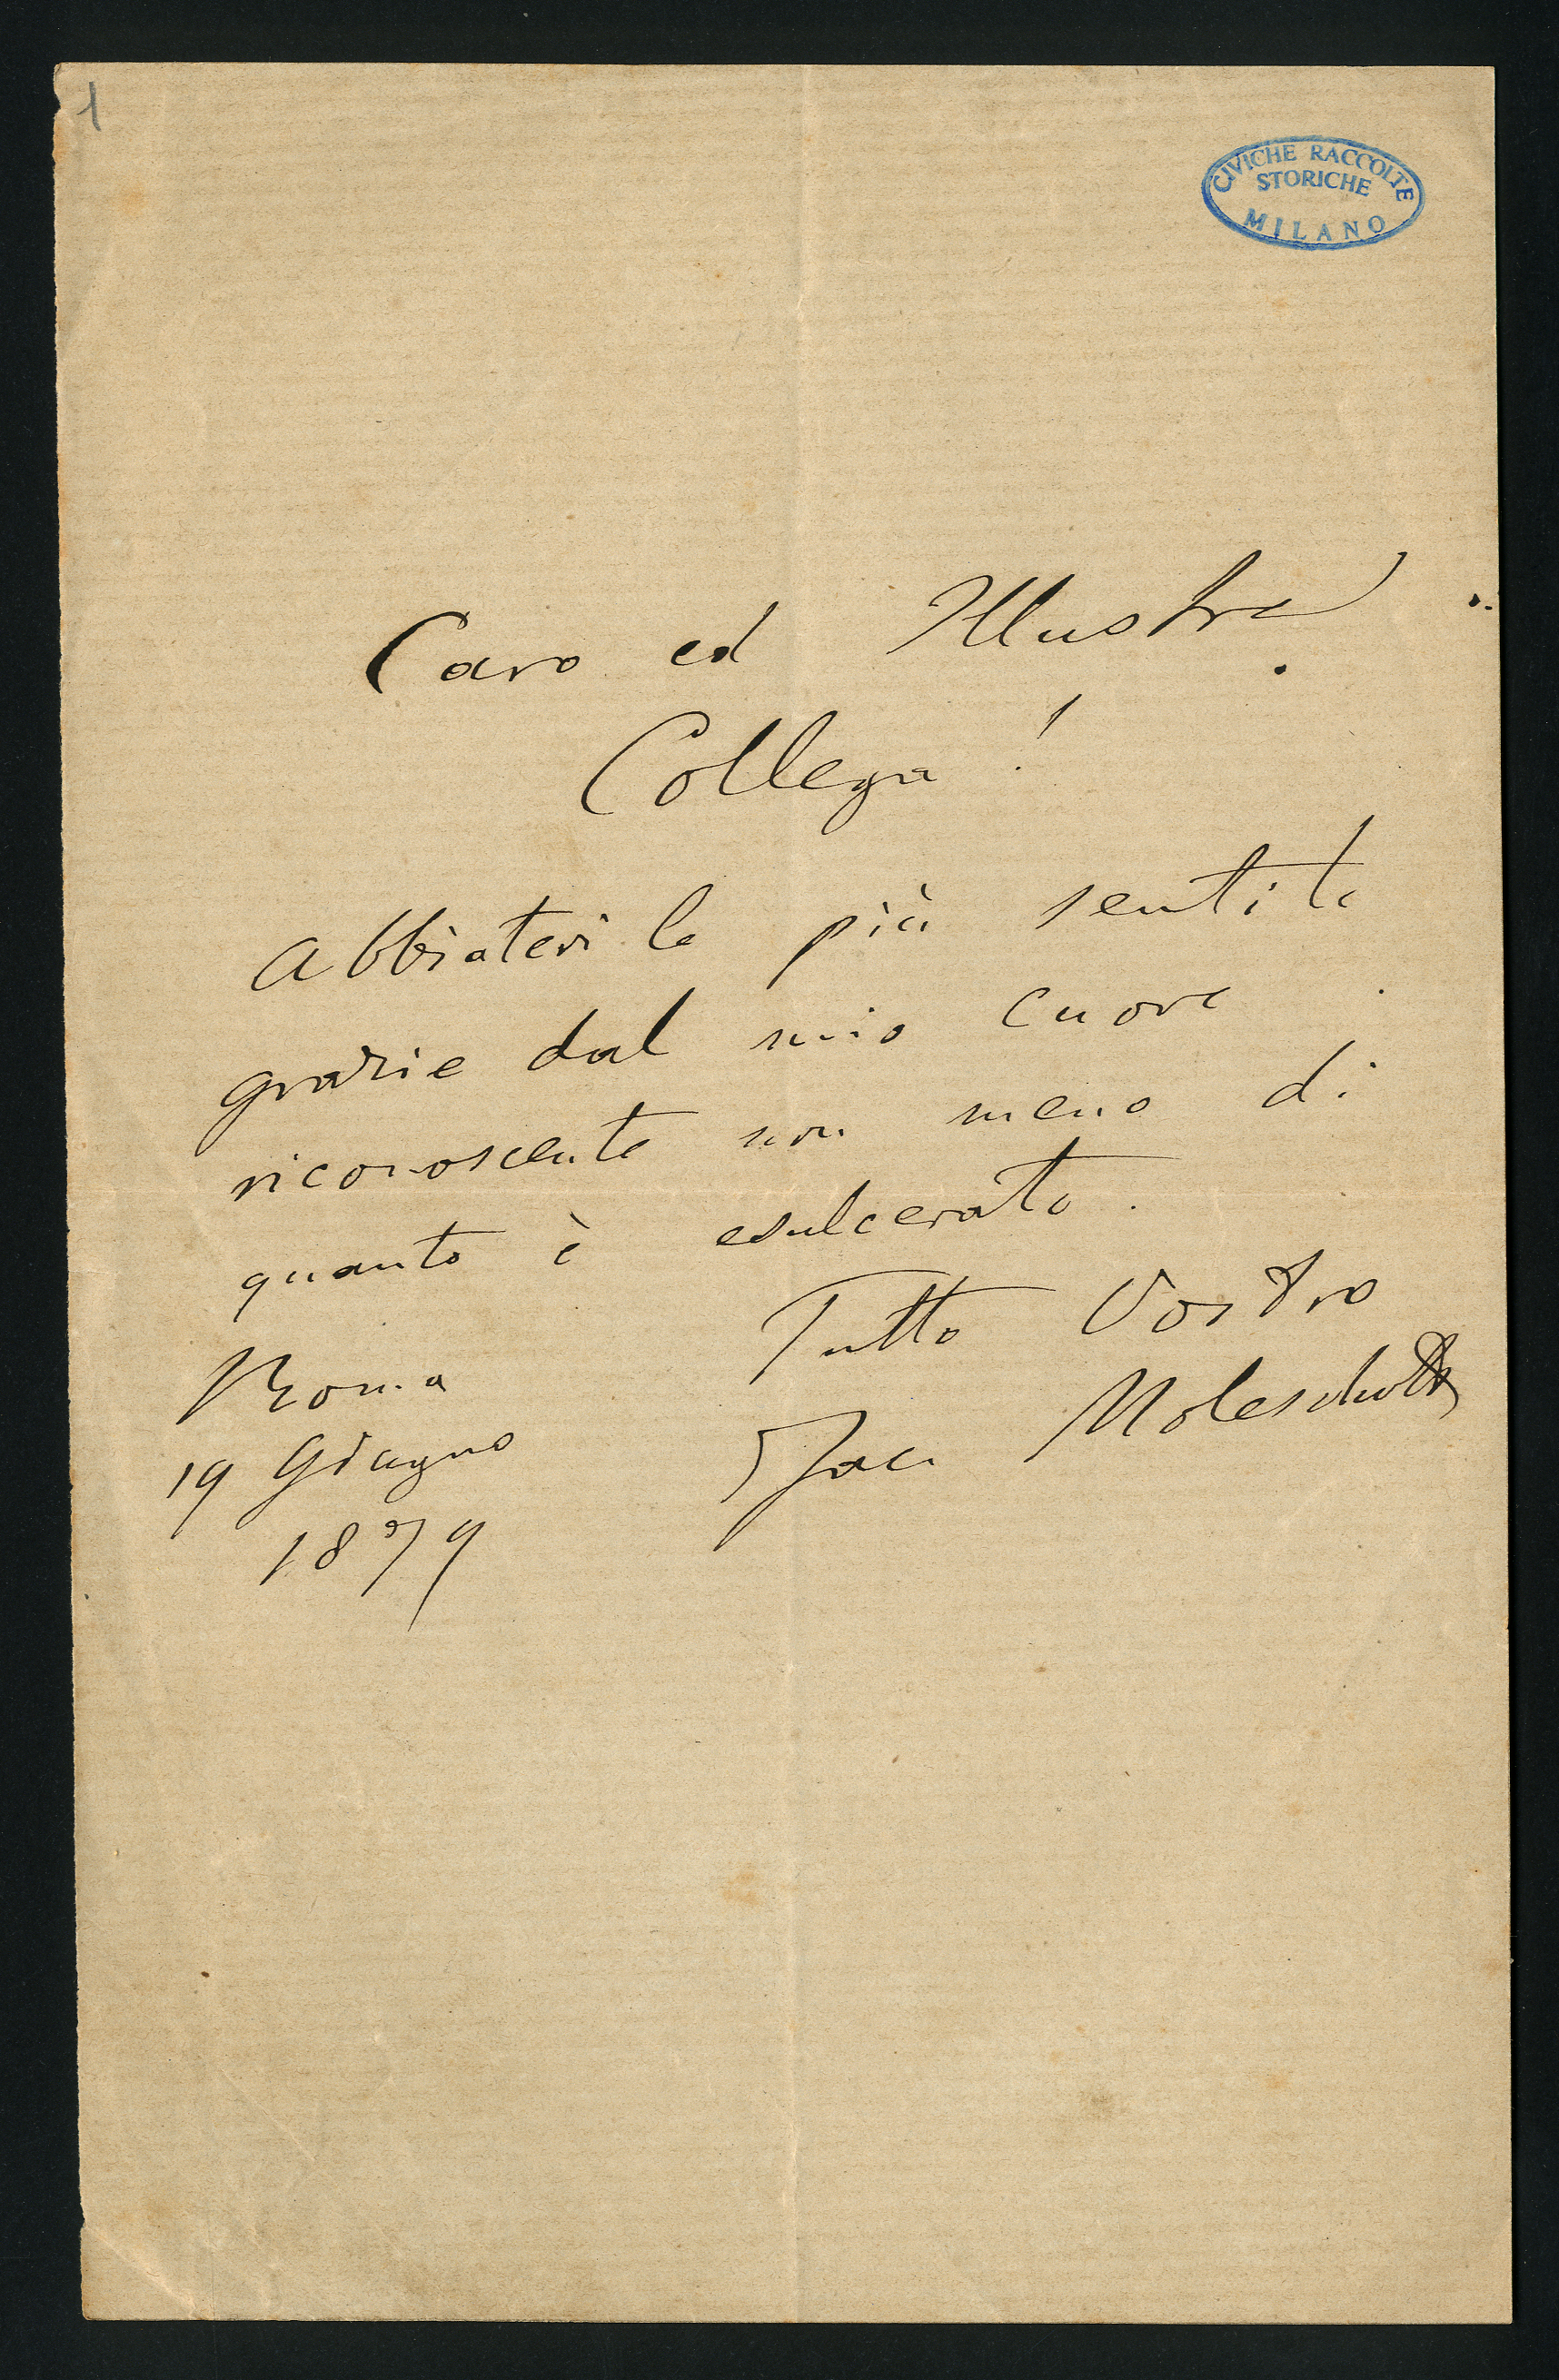 1
CIVICHE RACCOLTE
STORICHE
MILANO
Caro ed Illustre
Collega!
Abbiatevi le più sentite
grazie dal mio cuore
riconoscente non meno di
quanto è esulcerato.
Tutto Vostro
Jac. Moleschott
Roma
19 Giugno
1879